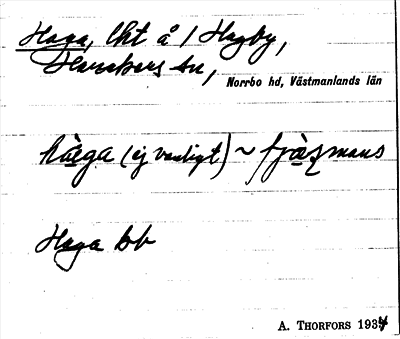 Haga, lht å 1 Hagby,
Harakers sn, Norrbo hd, Västmanlands län
hàga (ej vanligt) ~ fjàṣmans
Haga bb
A. THORFORS 1934